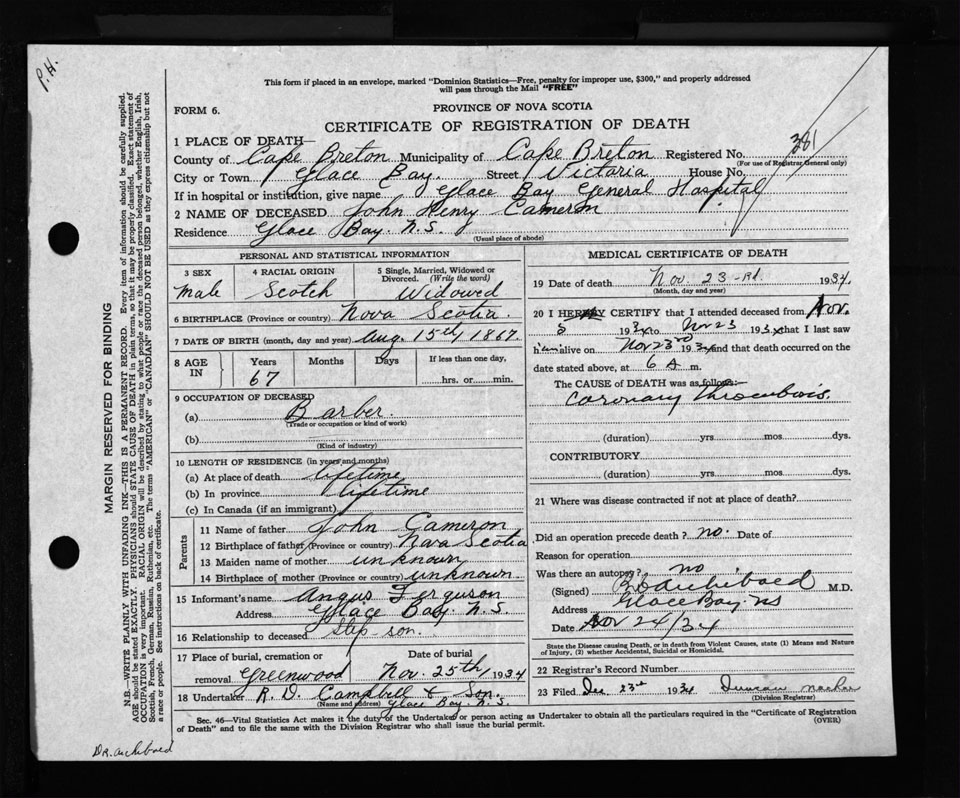 P.H.
This form if placed in an envelope, marked "Dominion Statistics—Free, penalty for improper use, $300," and properly addressed
will pass through the Mail "FREE"
FORM 6.
PROVINCE OF NOVA SCOTIA
CERTIFICATE OF REGISTRATION OF DEATH
1 PLACE OF DEATH—
County of Cape Breton Municipality of Cape Breton Registered No. 381
(For use of Registrar General only)
City or Town Glace Bay. Street Victoria House No.
If in hospital or institution, give name Glace Bay General Hospital
2 NAME OF DECEASED John Henry Cameron
Residence Glace Bay. N.S.
(Usual place of abode)
PERSONAL AND STATISTICAL INFORMATION
3 SEX 4 RACIAL ORIGIN 5 Single, Married, Widowed or Divorced. (Write the word)
Male Scotch Widowed
6 BIRTHPLACE (Province or country) Nova Scotia.
7 DATE OF BIRTH (month, day and year) Aug. 15th 1867.
8 AGE IN Years Months Days If less than one day,
67 hrs. or min.
9 OCCUPATION OF DECEASED
(a) Barber.
(Trade or occupation or kind of work)
(b)
(Kind of industry)
10 LENGTH OF RESIDENCE (in years and months)
(a) At place of death lifetime
(b) In province lifetime
(c) In Canada (if an immigrant)
Parents
11 Name of father John Cameron
12 Birthplace of father (Province or country) Nova Scotia
13 Maiden name of mother unknown
14 Birthplace of mother (Province or country) unknown.
15 Informant's name Angus Ferguson
Address Glace Bay. N.S.
16 Relationship to deceased Step-son.
17 Place of burial, cremation or removal Date of burial
Greenwood Nov. 25th, 1934
18 Undertaker R. D. Campbell & Son.
(Name and address) Glace Bay. N.S.
MEDICAL CERTIFICATE OF DEATH
19 Date of death Nov. 23-rd. 1934.
(Month, day and year)
20 I HEREBY CERTIFY that I attended deceased from Nov.
5 1934 to Nov 23 1934 that I last saw
him alive on Nov 23rd 1934 and that death occurred on the
date stated above, at 6 A m.
The CAUSE of DEATH was as follows:
Coronary Thrombosis.
(duration) yrs mos. dys.
CONTRIBUTORY
(duration) yrs. mos. dys.
21 Where was disease contracted if not at place of death?
Did an operation precede death? no. Date of
Reason for operation
Was there an autopsy? no
(Signed) Archibald M.D.
Address Glace Bay NS
Date Nov 24/34
State the Disease causing Death, or in death from Violent Causes, state (1) Means and Nature
of Injury, (2) whether Accidental, Suicidal or Homicidal.
22 Registrar's Record Number
23 Filed Dec. 23rd 1934
(Division Registrar)
Sec. 46—Vital Statistics Act makes it the duty of the Undertaker or person acting as Undertaker to obtain all the particulars required in the "Certificate of Registration
of Death" and to file the same with the Division Registrar who shall issue the burial permit. (OVER)
MARGIN RESERVED FOR BINDING
N.B.—WRITE PLAINLY WITH UNFADING INK—THIS IS A PERMANENT RECORD. Every item of information should be carefully supplied.
AGE should be stated EXACTLY. PHYSICIANS should STATE CAUSE OF DEATH in plain terms, so that it may be properly classified. Exact statement of
OCCUPATION is very important. RACIAL ORIGIN will be described by stating to what people or race the deceased person belonged, whether English, Irish,
Scottish, French, German, Russian, Ruthenian, etc. The terms "AMERICAN" or "CANADIAN" SHOULD NOT BE USED as they express citizenship but not
a race or people. See instructions on back of certificate.
Dr. Archibald